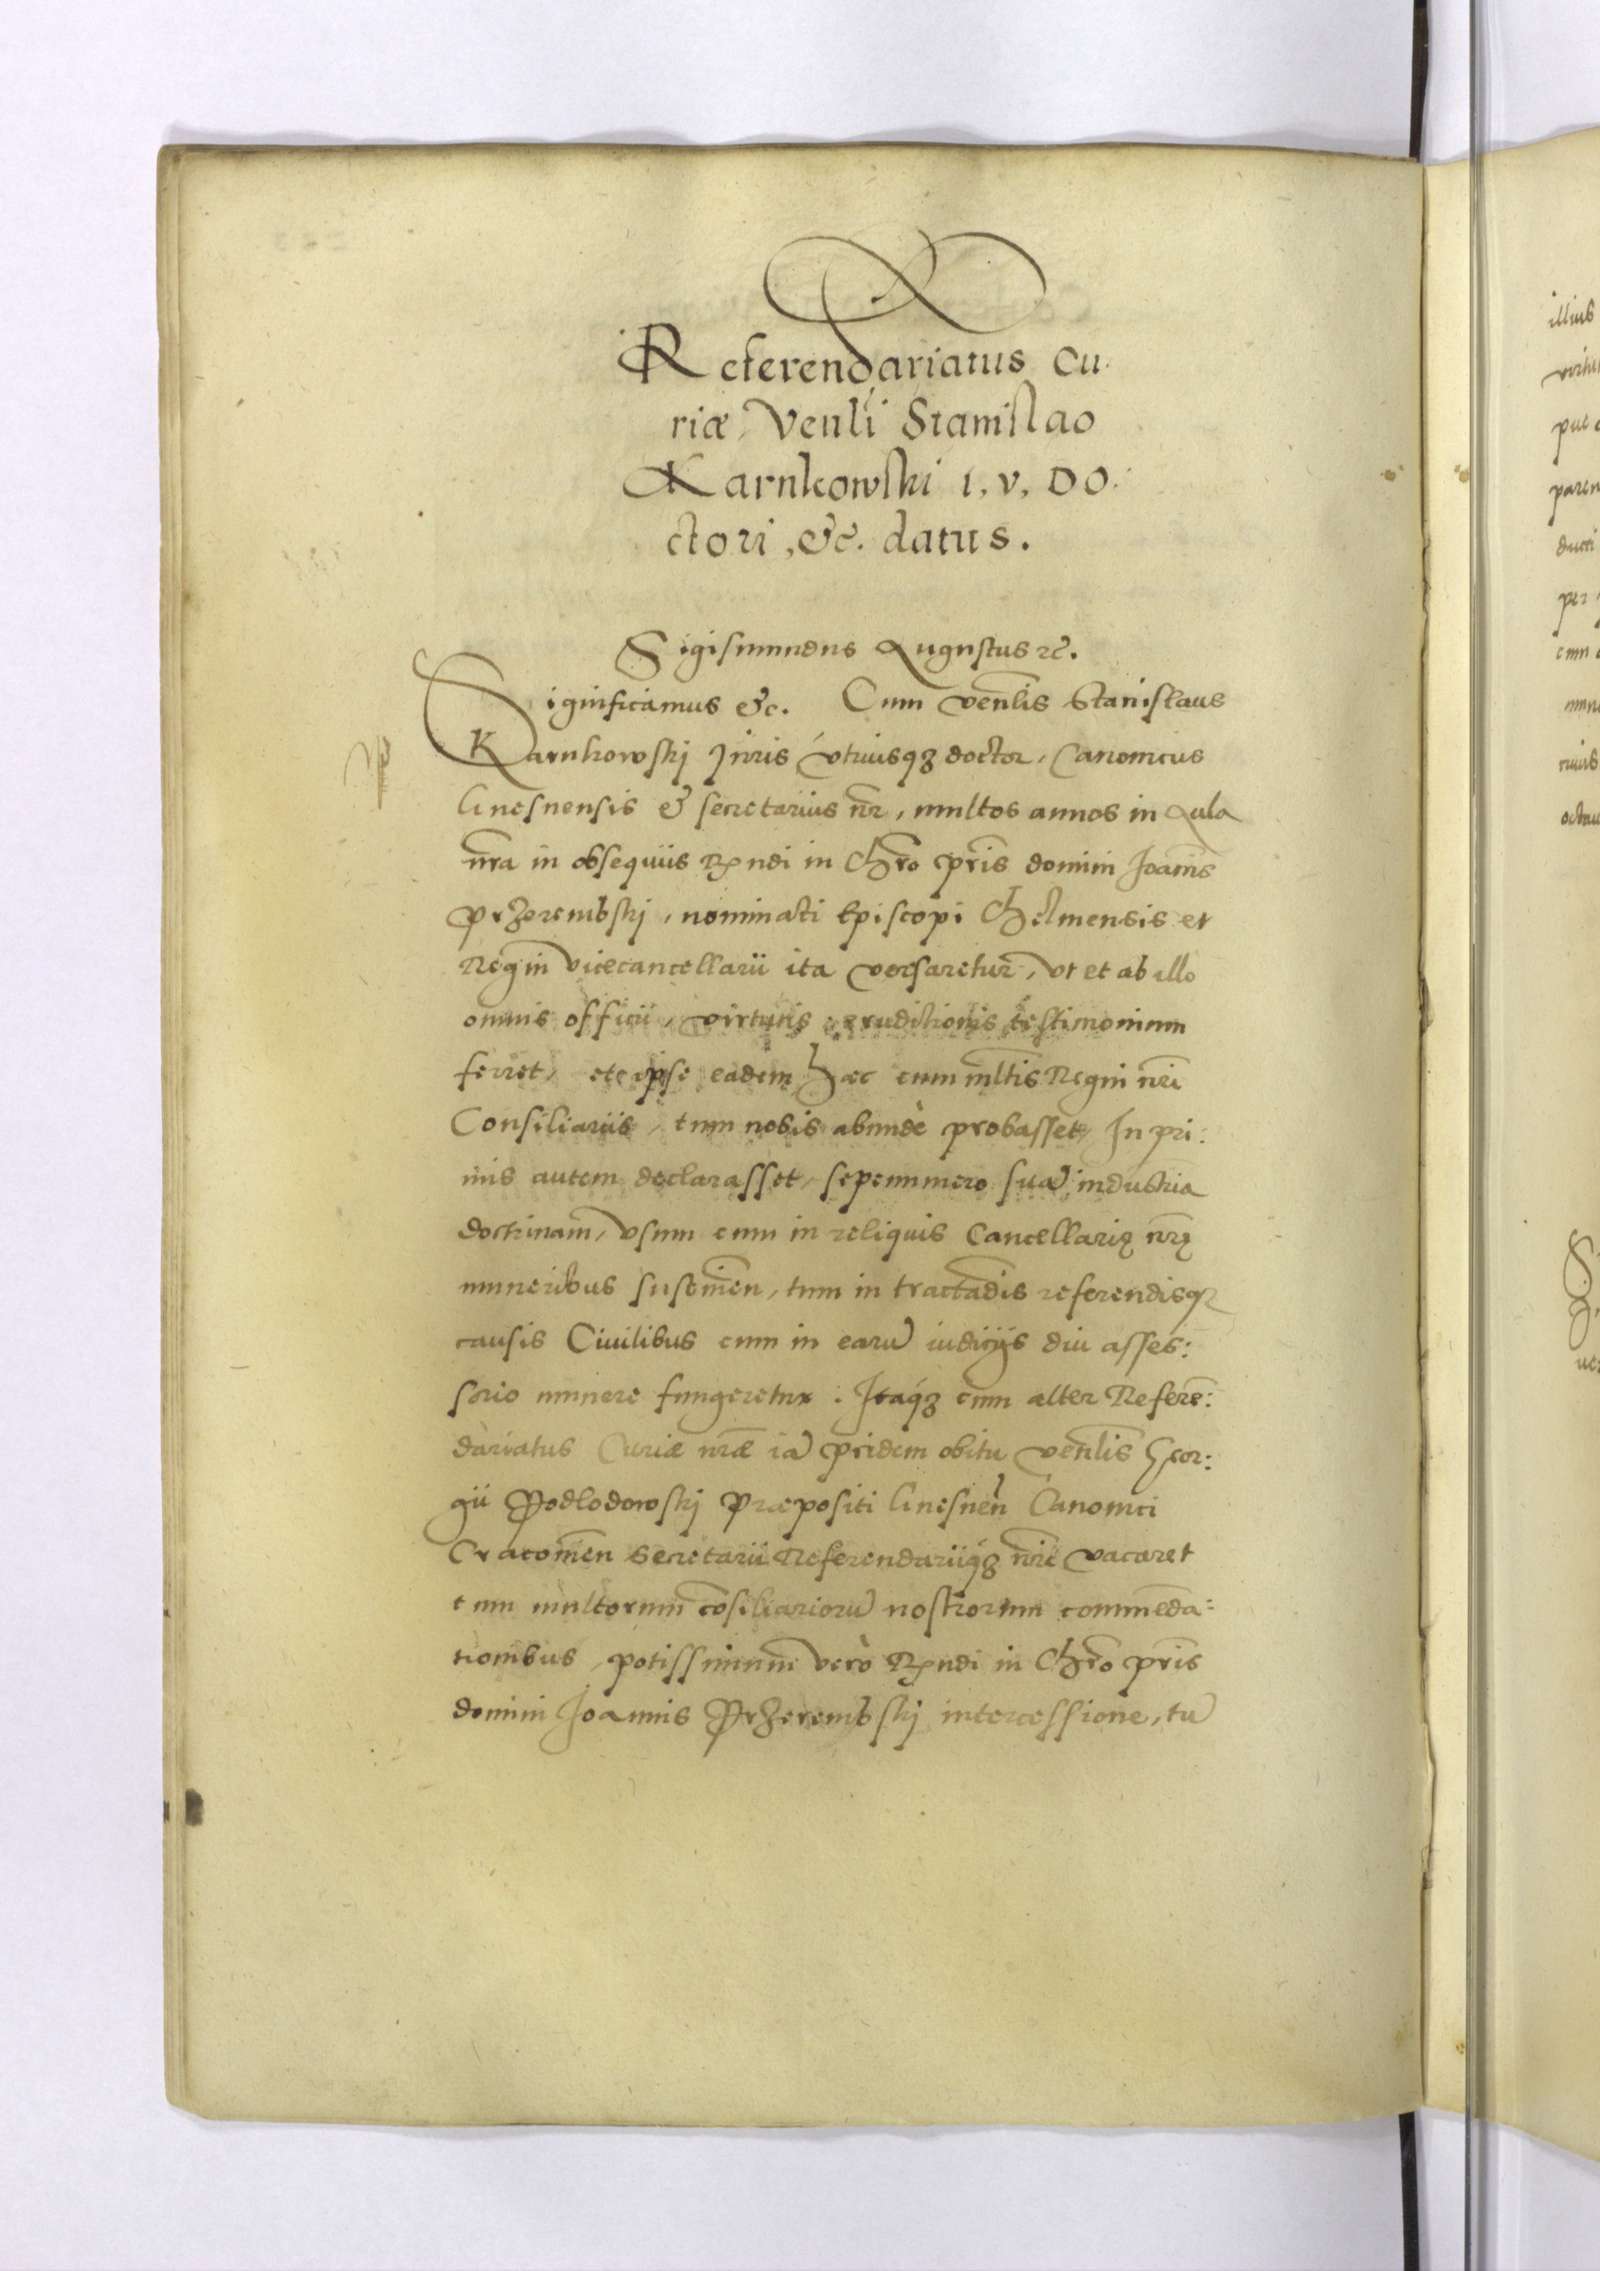 Referendariatus Cu:
riæ Venli Stanislao
Karnkowski I. V. Do:
ctori, &c. datus.
Sigismundus Augustus &c.
Significamus &c. Cum venlis Stanislaus
Karnkowskj Juris vtriusqȝ doctor, Canonicus
Gnesnensis & secretarius nr̄, multos annos in Aula
nr̄a in obsequiis Rndi in Chr̄o pr̄is domini Joanīs
Przerembskj, nominati Episcopi Chelmensis et
Regni vicecancellarii ita versaretur, vt et ab illo
omnis officii, virtutis eruditionis testimonium
ferret, et ipse eadem hæc cum ml̄tis Regni nr̄i
Consiliariis, tum nobis abundè probasset, In pri:
mis autem declarasset, sepenumero suā industriā
doctrinam, vsum cum in reliquis Cancellarię nr̄ę
muneribus , tum in tractādis referendisqȝ
causis Ciuilibus cum in earū iudicijs diu asses:
sorio munere fungeretur. Itaqȝ cum alter Referē:
dariatus Curiæ nr̄æ iā pridem obitu venlis Geor:
gii Podlodowskj Præpositi Gnesnen̄ Canonici
Cracouien̄ Secretarii Referendariiqȝ nr̄i vacaret
cum multorum cōsiliariorū nostrorum commēda:
tionibus, potissimum verò Rndi in Chr̄o pr̄is
domini Joannis Przerembskj intercessione, tū
illius
per
cum
ciuis